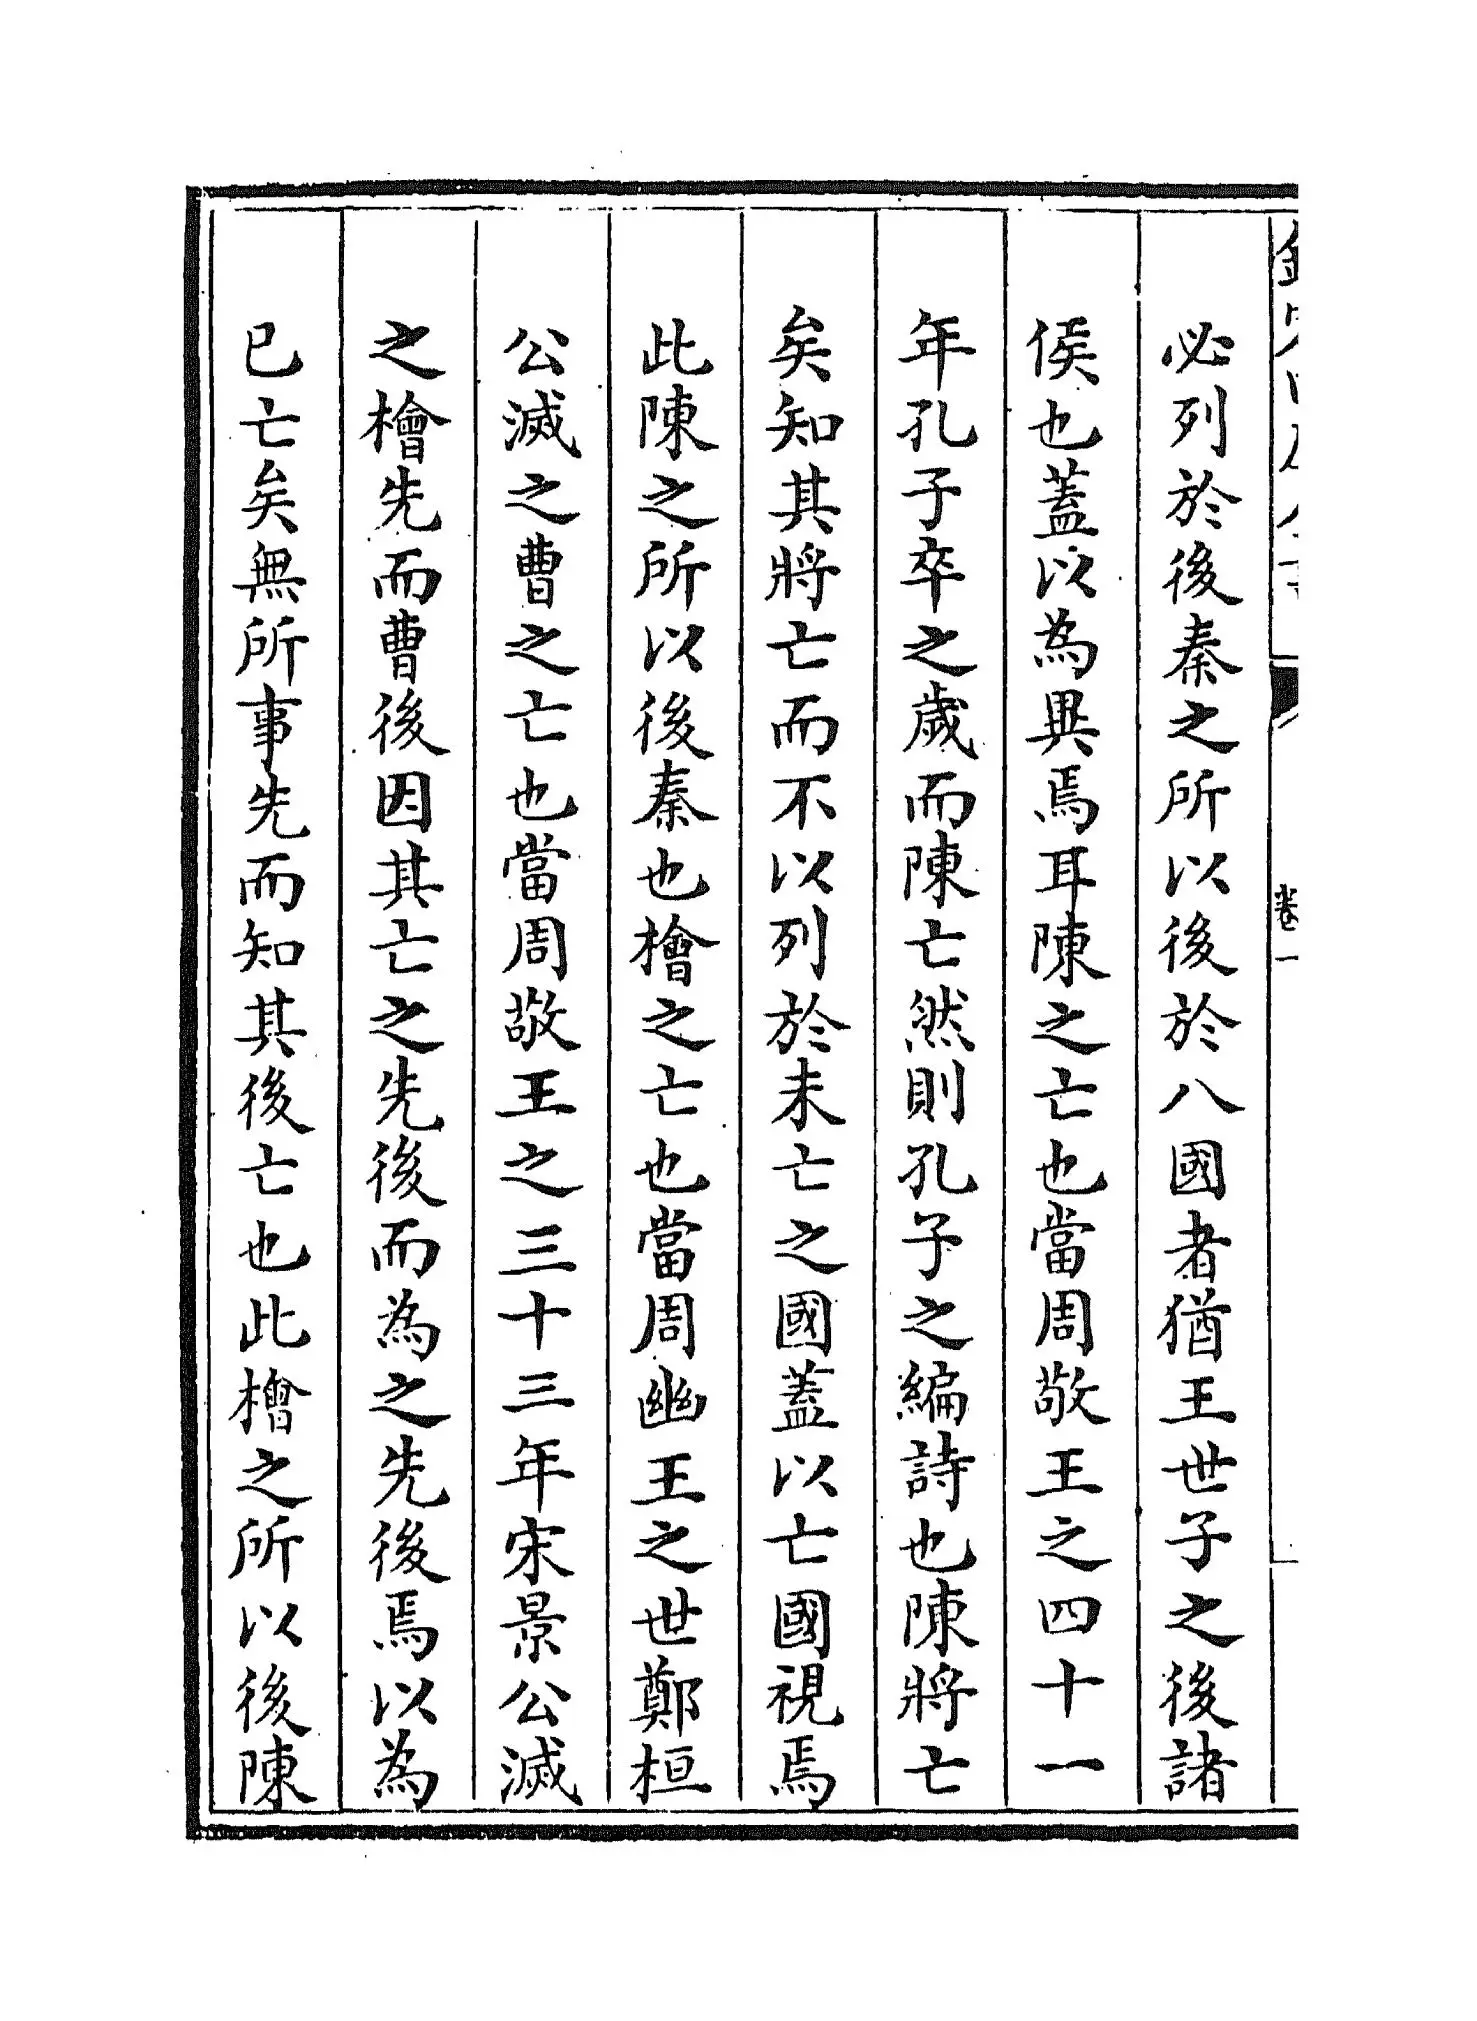 必列於後秦之所以後於八國者猶王世子之後諸
侯也蓋以為異焉耳陳之亡也當周敬王之四十一
年孔子卒之歲而陳亡然則孔子之編詩也陳將亡
矣知其將亡而不以列於未亡之國蓋以亡國視焉
此陳之所以後秦也檜之亡也當周幽王之世鄭桓
公滅之曹之亡也當周敬王之三十三年宋景公滅
之檜先而曹後因其亡之先後而為之先後焉以為
已亡矣無所事先而知其後亡也此檜之所以後陳
卷一